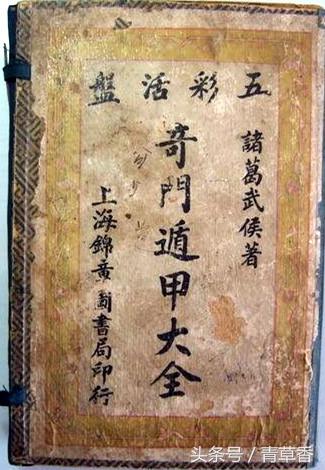 五彩活盤
諸葛武侯著
竒門遁甲大全
上海錦章圖書局印行
头条号／青草香